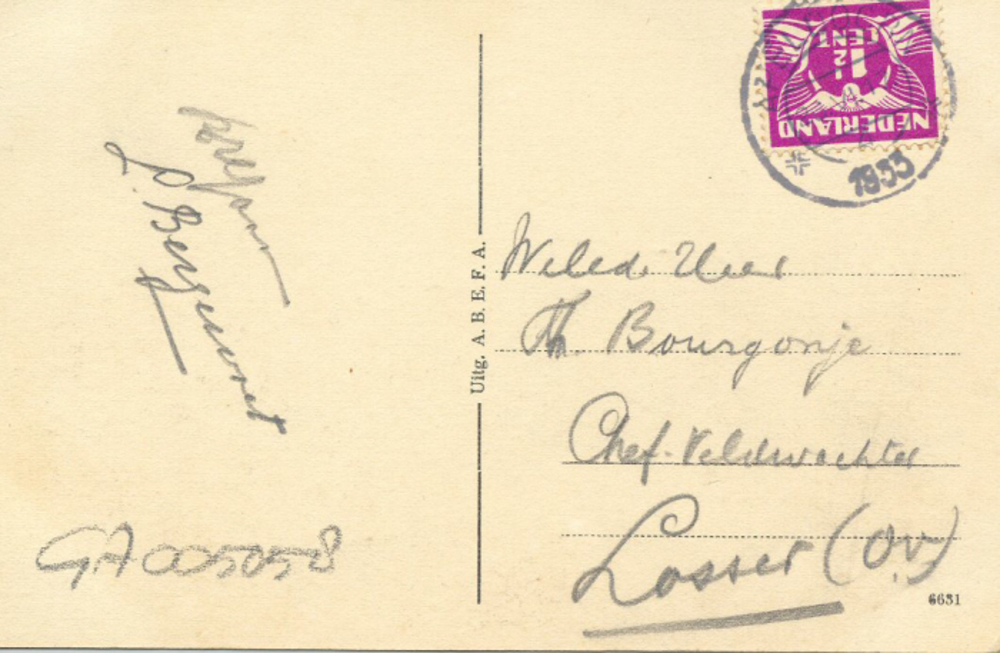 L. Bergervoet
GA005058
Uitg. A. B. E. F. A.
NEDERLAND
1½
CENT
1933
Weled. Heer
Th. Bourgonje
Chef-Veldwachter
Losser (Ov)
6631